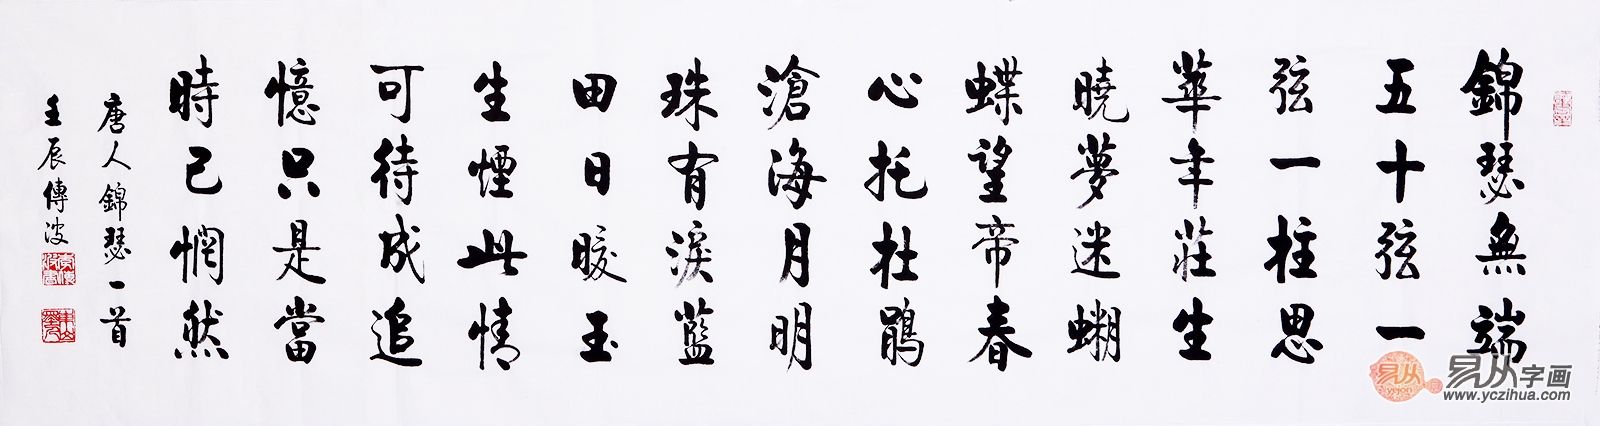 錦瑟無端
五十弦一
弦一柱思
華年莊生
曉夢迷蝴
蝶望帝春
心托杜鹃
滄海月明
珠有淚藍
田日暖玉
生煙此情
可待成追
憶只是當
時已惘然
唐人錦瑟一首
壬辰傳波
易从
yicon
易从字画
www.yczihua.com